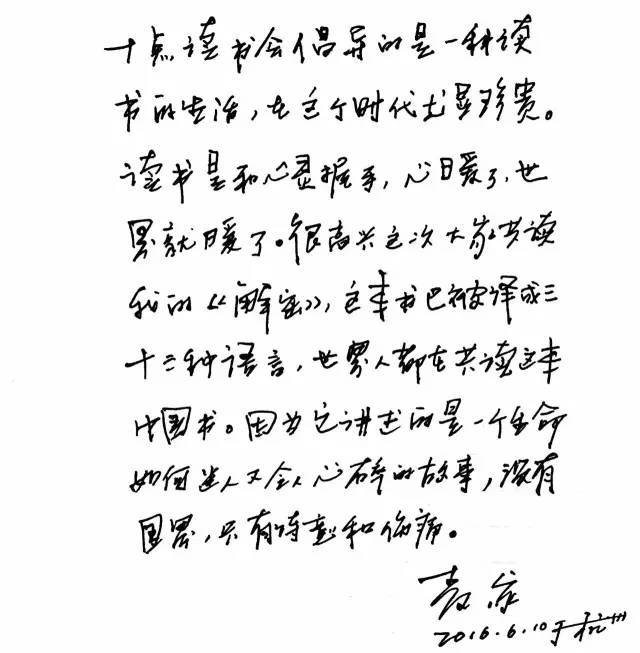 十点读书会倡导的是一种读
书的生活，在这个时代尤显珍贵。
读书是和心灵握手，心暖了，世
界就暖了。很高兴这次大家共读
我的《解密》，这本书已被译成三
十三种语言，世界人都在共读这本
中国书。因为它讲述的是一个生命
如何迷人又令人心碎的故事，没有
国界，只有诗意和伤痛。
麦家
2016.6.10于杭州